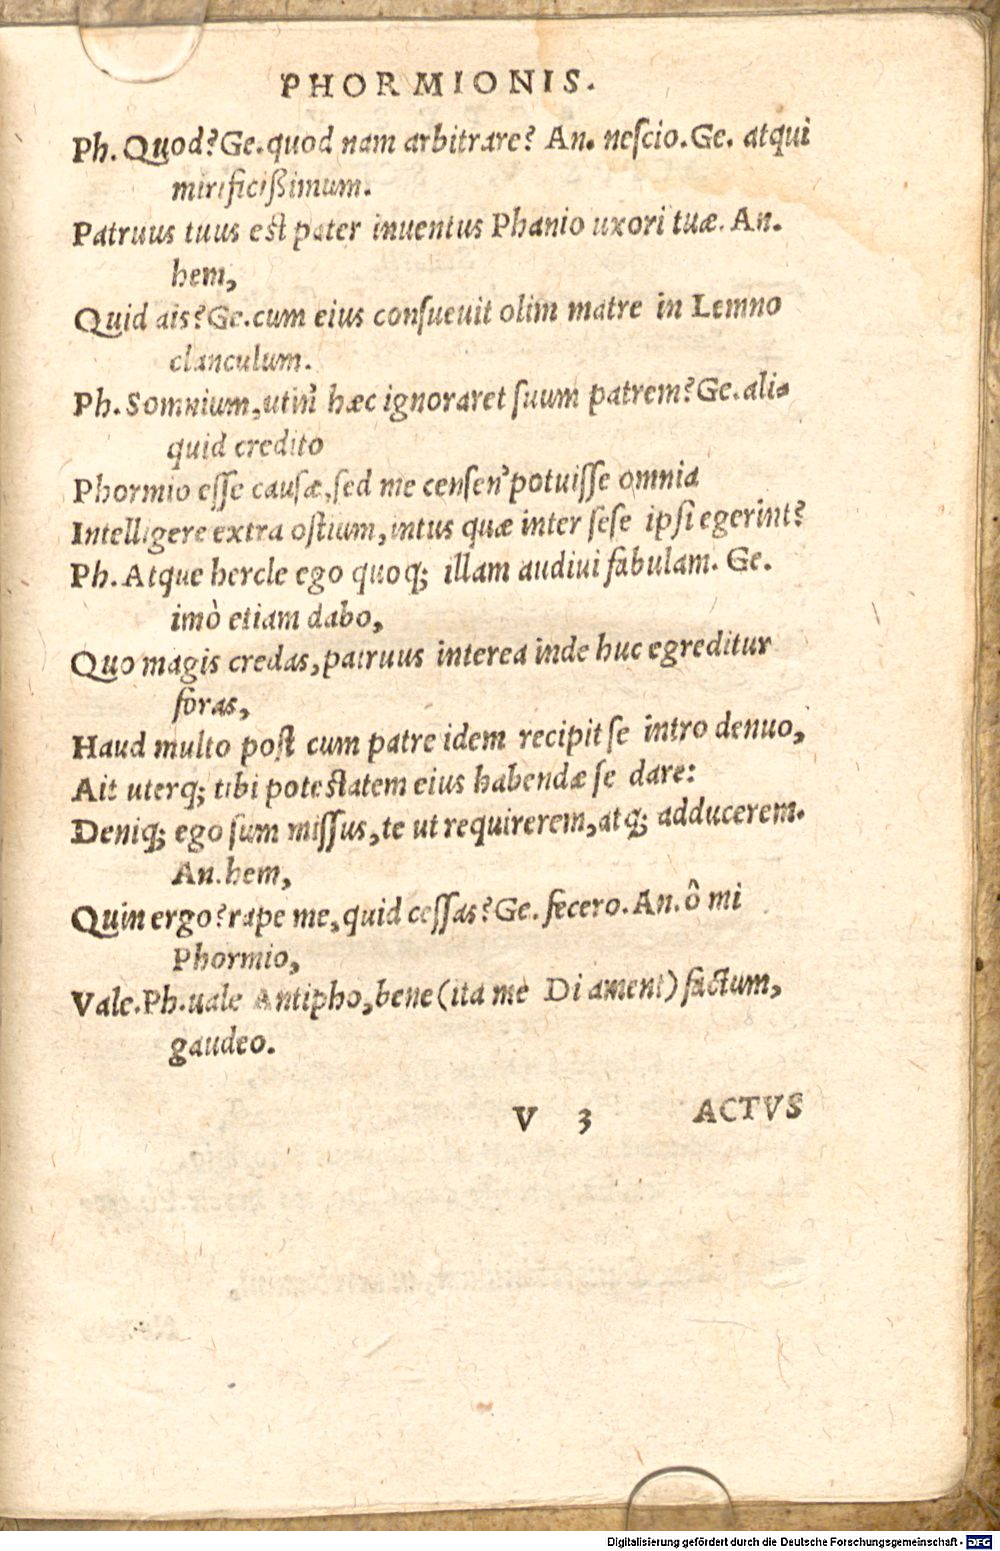 PHORMIONIS.
Ph. Quod? Ge. quod nam arbitrare? An. nescio. Ge. atqui
mirificißimum.
Patruus tuus est pater inuentus Phanio uxori tuæ. An.
hem,
Quid ais? Ge. cum eius consueuit olim matre in Lemno
clanculum.
Ph. Somnium, utin' hæc ignoraret suum patrem? Ge. ali-
quid credito
Phormio esse causæ, sed me censen' potuisse omnia
Intelligere extra ostium, intus quæ inter sese ipsi egerint?
Ph. Atque hercle ego quoq; illam audiui fabulam. Ge.
imò etiam dabo,
Quo magis credas, patruus interea inde huc egreditur
foras,
Haud multo post cum patre idem recipit se intro denuo,
Ait uterq; tibi potestatem eius habendæ se dare:
Deniq; ego sum missus, te ut requirerem, atq; adducerem.
An. hem,
Quin ergo? rape me, quid cessas? Ge. fecero. An. ô mi
Phormio,
Vale. Ph. uale Antipho, bene (ita me Di ament) factum,
gaudeo.
V 3 ACTVS
Digitalisierung gefördert durch die Deutsche Forschungsgemeinschaft - DFG